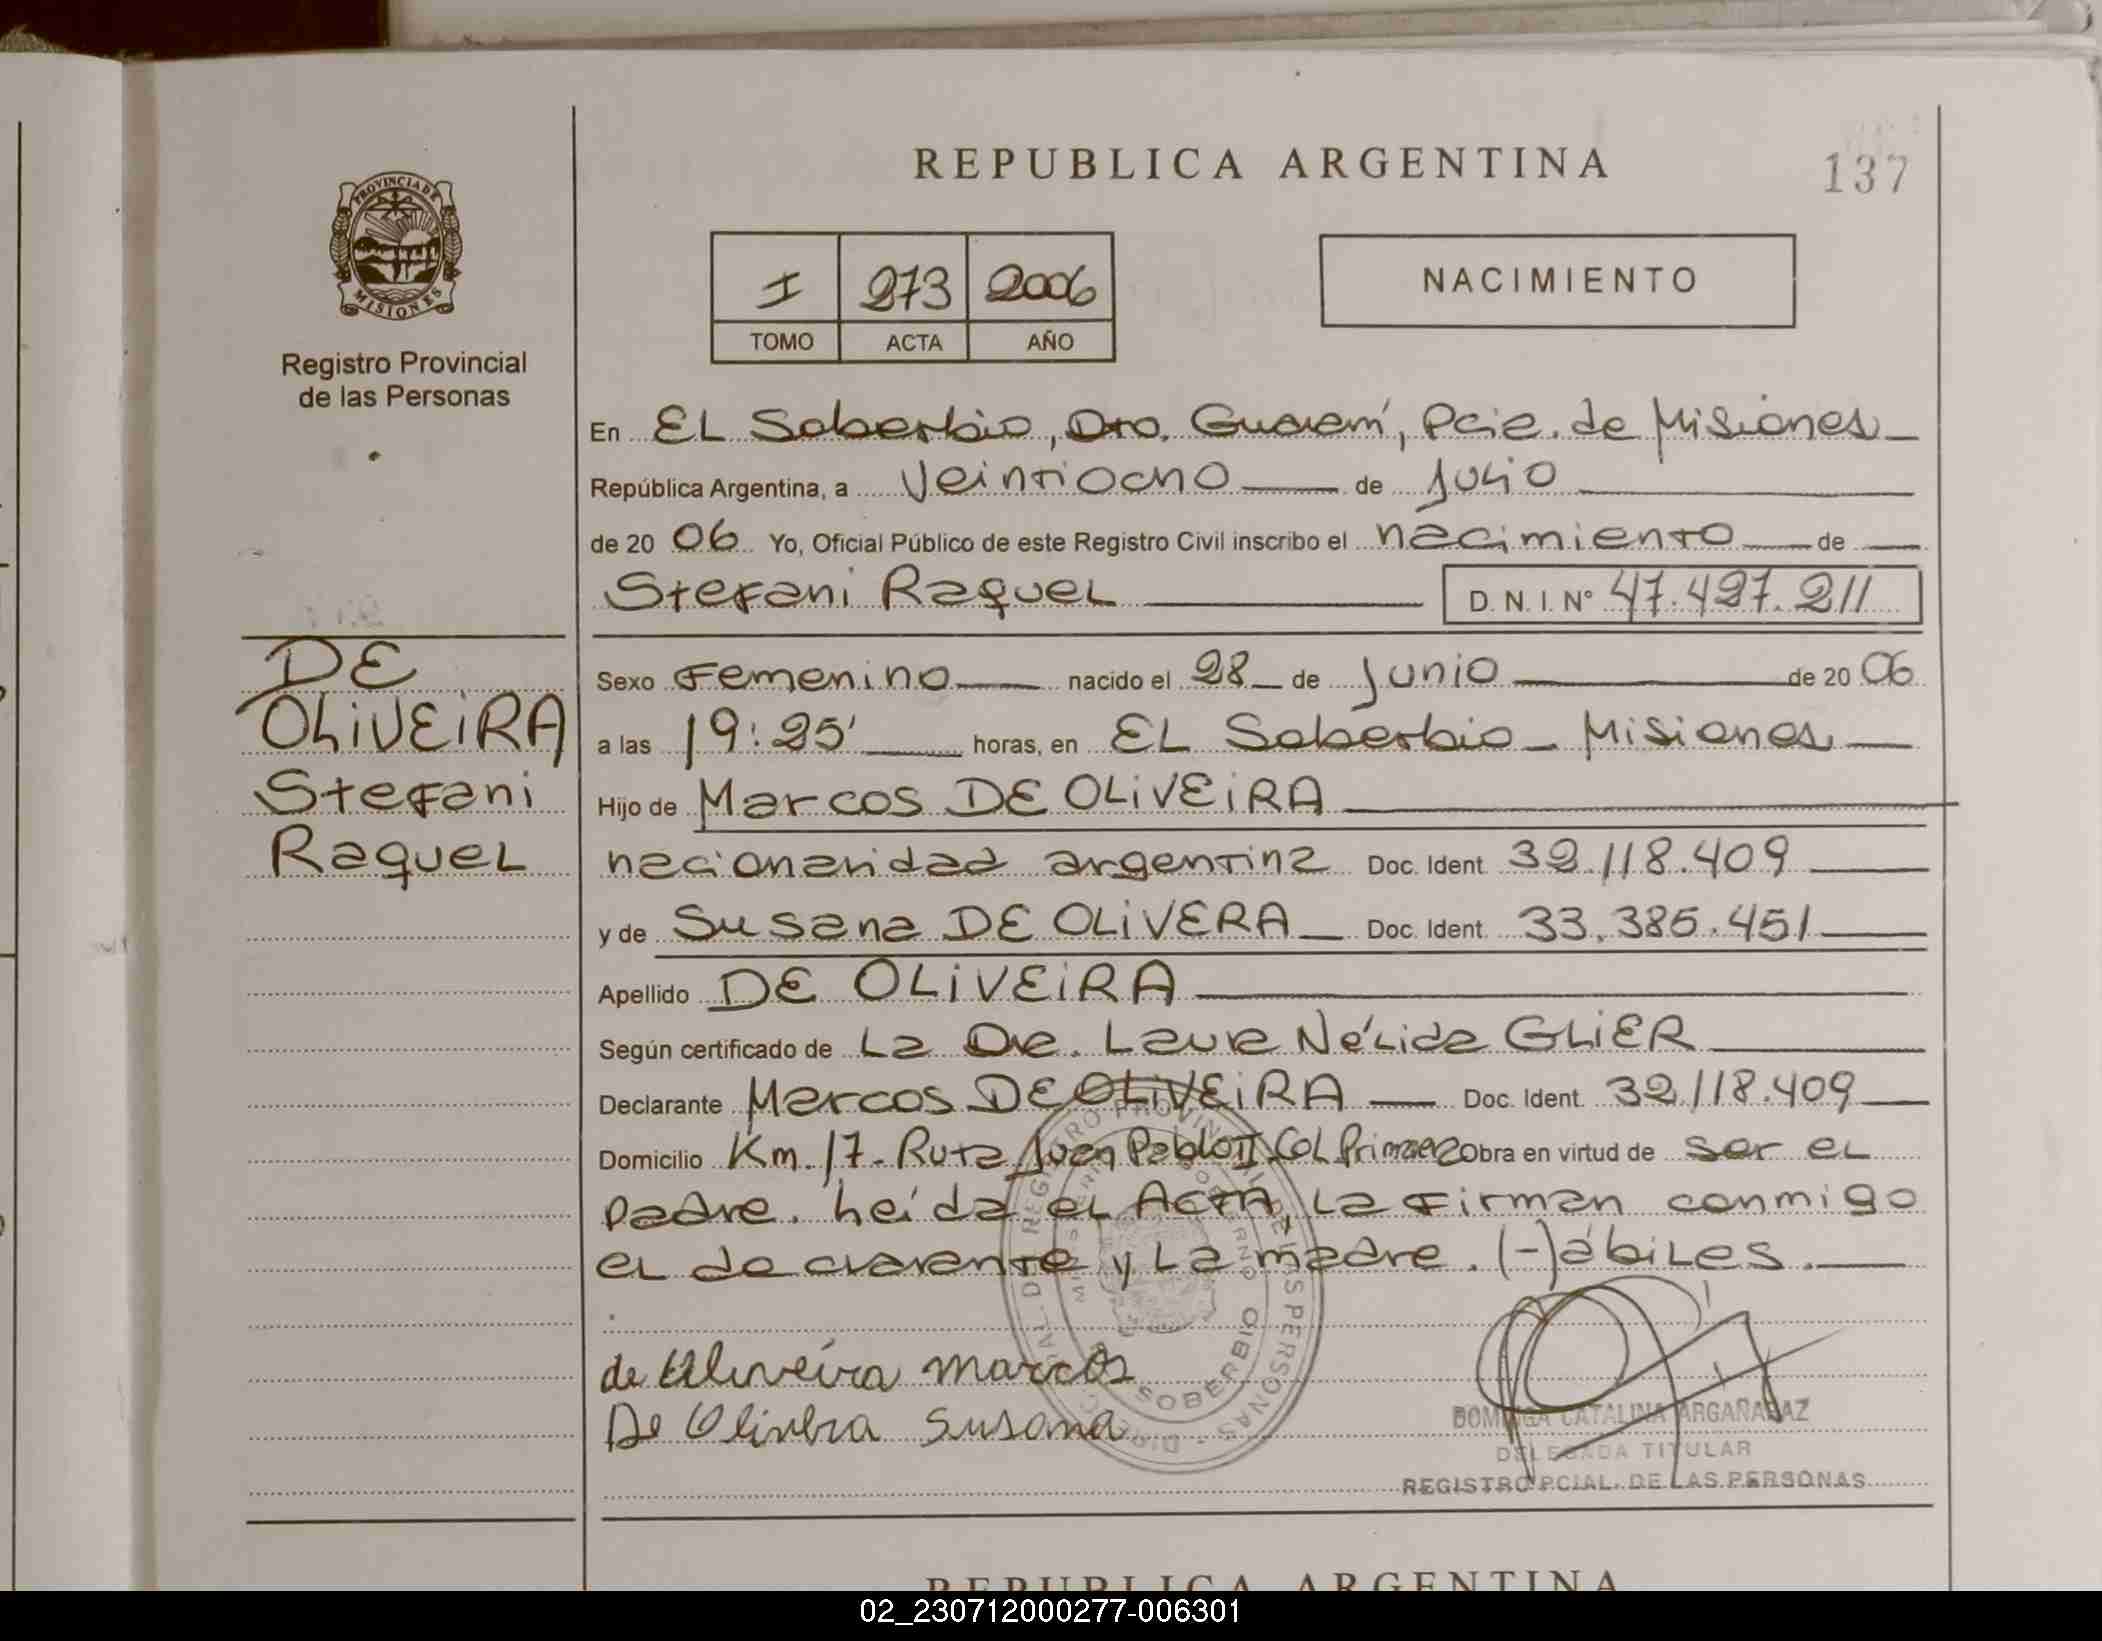 REPUBLICA ARGENTINA
137
PROVINCIA DE
MISIONES
Registro Provincial
de las Personas
I 273 2006
TOMO ACTA AÑO
NACIMIENTO
En EL Soberbio, Dto. Guaraní, Pcia. de Misiones
República Argentina, a veintiocho de julio
de 20 06 Yo, Oficial Público de este Registro Civil inscribo el nacimiento de
Stefani Raquel D. N. I. Nº 47.427.211
DE
OLIVEIRA
Stefani
Raquel
Sexo Femenino nacido el 28 de junio de 20 06
a las 19:25' horas, en EL Soberbio - Misiones
Hijo de Marcos DE OLIVEIRA
nacionalidad argentina Doc. Ident. 32.118.409
y de Susana DE OLIVERA Doc. Ident. 33.385.451
Apellido DE OLIVEIRA
Según certificado de La Dra. Laura Nélida GLIER
Declarante Marcos DE OLIVEIRA Doc. Ident. 32.118.409
Domicilio Km. 17- Ruta Juan Pablo II, Col. Primavera Obra en virtud de ser el
padre. Leída el ACTA, La firman conmigo
el declarante y La madre. (-) ábiles.
de Oliveira marcos
De Olivera Susana
SOBERBIO
DOMINGA CATALINA ARGAÑARAZ
DELEGADA TITULAR
REGISTRO PCIAL. DE LAS PERSONAS
REPUBLICA ARGENTINA
02_230712000277-006301